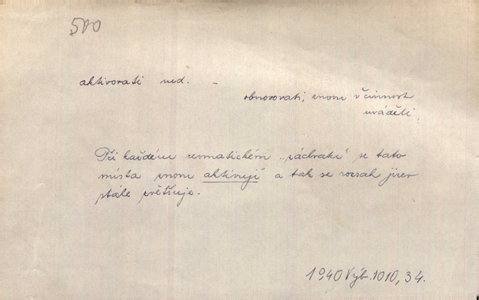 500
aktivovati ned. –
obnovovati, znovu v činnost
uváděti.
Při každém reumatickém „záchvatu“ se tato
místa znovu aktivují a tak se rozsah jizev
stále zvětšuje.
1940 Výb. 1010, 34.